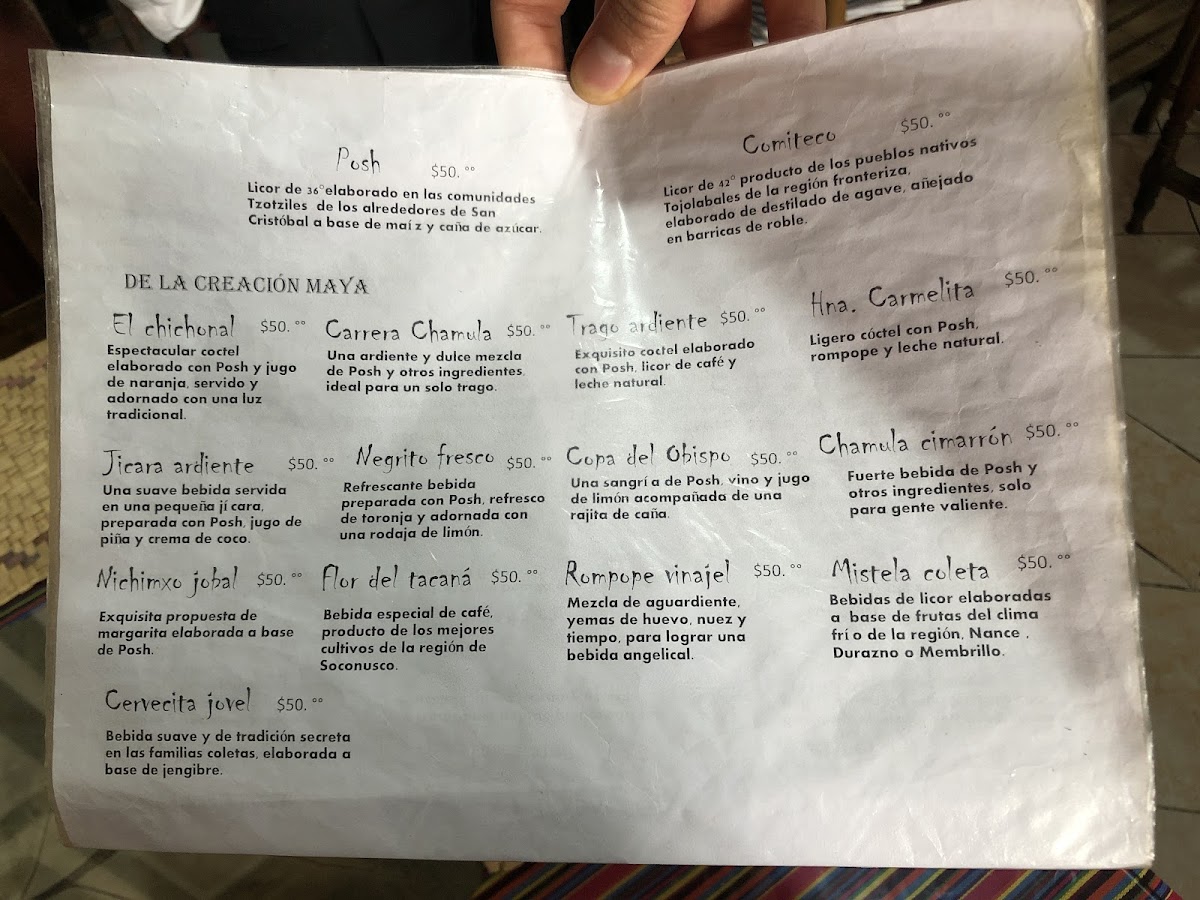 Posh $50.°°
Licor de 36°elaborado en las comunidades
Tzotziles de los alrededores de San
Cristóbal a base de maí z y caña de azúcar.
Comiteco $50.°°
Licor de 42° producto de los pueblos nativos
Tojolabales de la región fronteriza,
elaborado de destilado de agave, añejado
en barricas de roble.
DE LA CREACIÓN MAYA
El chichonal $50.°°
Espectacular coctel
elaborado con Posh y jugo
de naranja, servido y
adornado con una luz
tradicional.
Carrera Chamula $50.°°
Una ardiente y dulce mezcla
de Posh y otros ingredientes,
ideal para un solo trago.
Trago ardiente $50.°°
Exquisito coctel elaborado
con Posh, licor de café y
leche natural.
Hna. Carmelita $50.°°
Ligero cóctel con Posh,
rompope y leche natural.
Jicara ardiente $50.°°
Una suave bebida servida
en una pequeña jí cara,
preparada con Posh, jugo de
piña y crema de coco.
Negrito fresco $50.°°
Refrescante bebida
preparada con Posh, refresco
de toronja y adornada con
una rodaja de limón.
Copa del Obispo $50.°°
Una sangrí a de Posh, vino y jugo
de limón acompañada de una
rajita de caña.
Chamula cimarrón $50.°°
Fuerte bebida de Posh y
otros ingredientes, solo
para gente valiente.
Nichimxo jobal $50.°°
Exquisita propuesta de
margarita elaborada a base
de Posh.
Flor del tacaná $50.°°
Bebida especial de café,
producto de los mejores
cultivos de la región de
Soconusco.
Rompope vinajel $50.°°
Mezcla de aguardiente,
yemas de huevo, nuez y
tiempo, para lograr una
bebida angelical.
Mistela coleta $50.°°
Bebidas de licor elaboradas
a base de frutas del clima
frí o de la región, Nance ,
Durazno o Membrillo.
Cervecita jovel $50.°°
Bebida suave y de tradición secreta
en las familias coletas, elaborada a
base de jengibre.